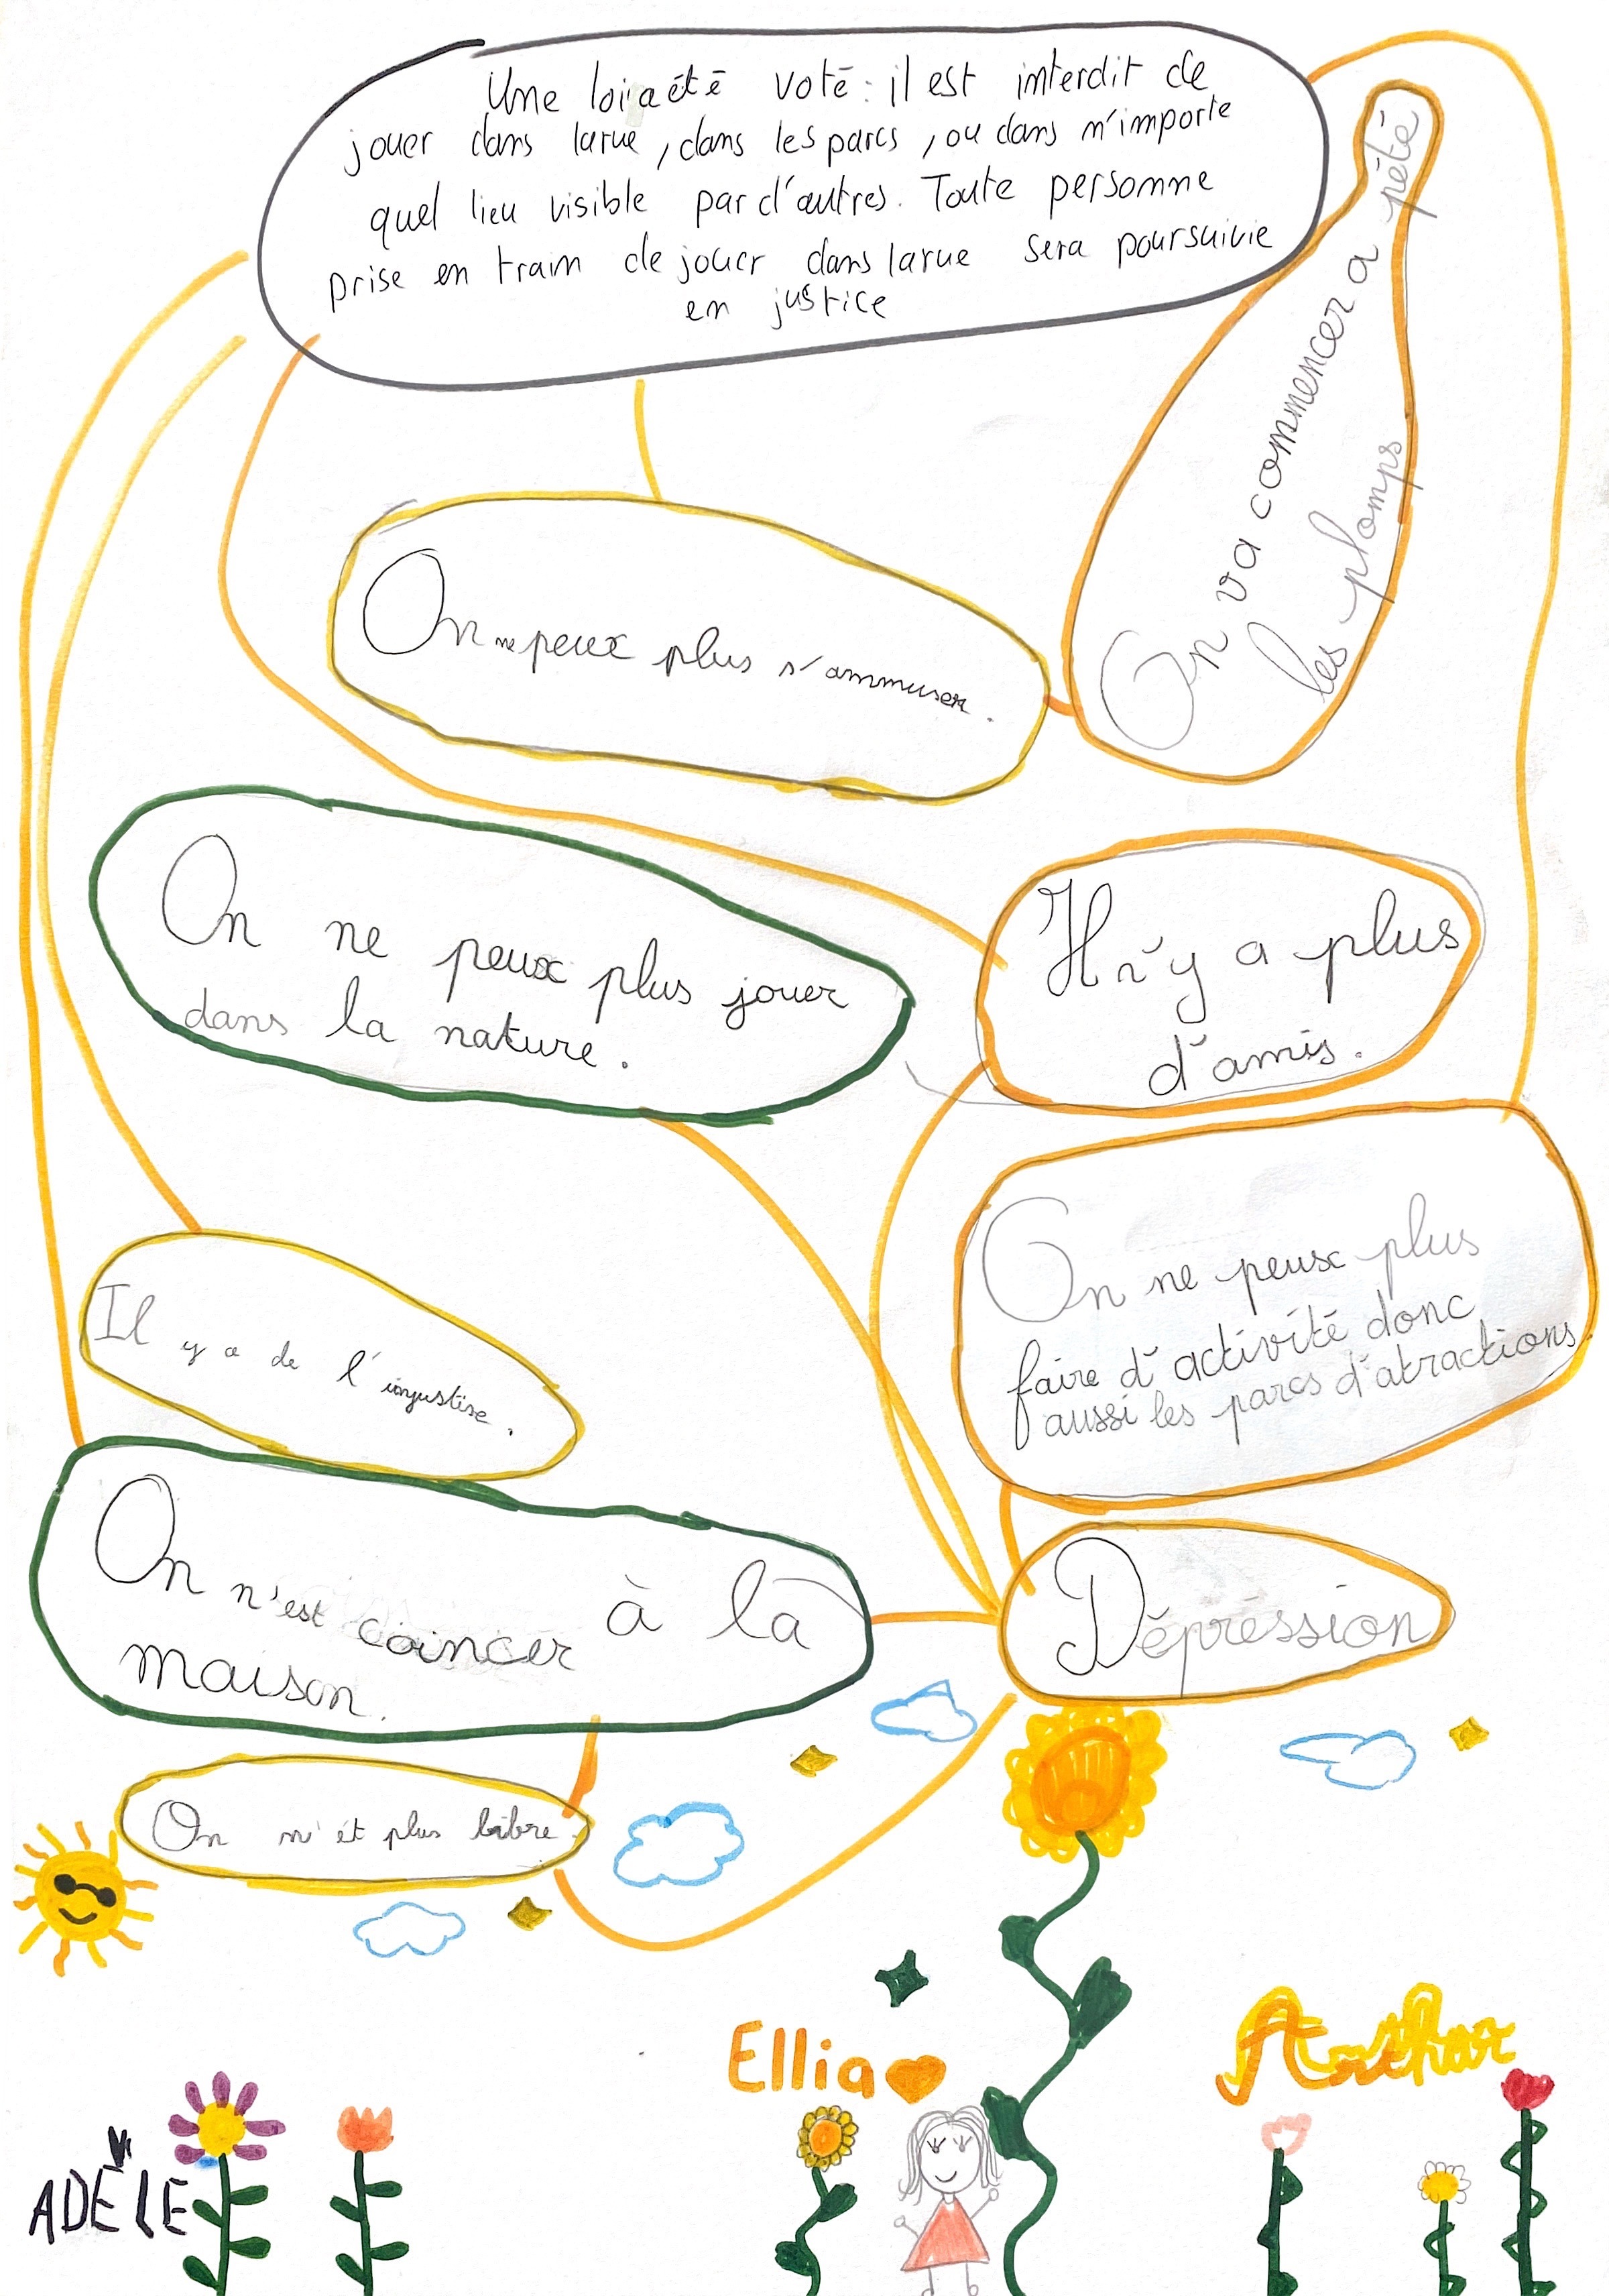 Une loi a été voté : il est interdit de
jouer dans la rue, dans les parcs, ou dans n'importe
quel lieu visible par d'autres. Toute personne
prise en train de jouer dans la rue sera poursuivie
en justice
On va commencer a pété
les plomps
On ne peux plus s'ammuser.
On ne peux plus jouer
dans la nature.
Il n'y a plus
d'amis.
On ne peux plus
faire d'activité donc
aussi les parcs d'atractions.
Il y a de l'injustise.
On n'est coincer à la
maison.
Dépréssion
On n'ét plus libre.
Ellia
Arthur
ADÈLE